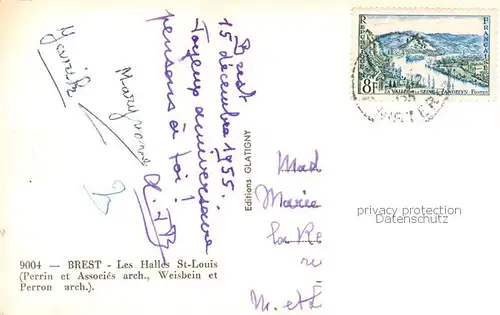 Brest
15 décembre 1955.
Joyeux anniversaire
pensons à toi !
Maryvonne
Yannick
REPUBLIQUE FRANÇAISE
8F
LA VALLÉE DE LA SEINE AUX ANDELYS
POSTES
FINISTERE
Editions GLATIGNY
Mad
Marie
la Re
M. et
privacy protection
9004 — BREST - Les Halles St-Louis
(Perrin et Associés arch., Weisbein et
Perron arch.).